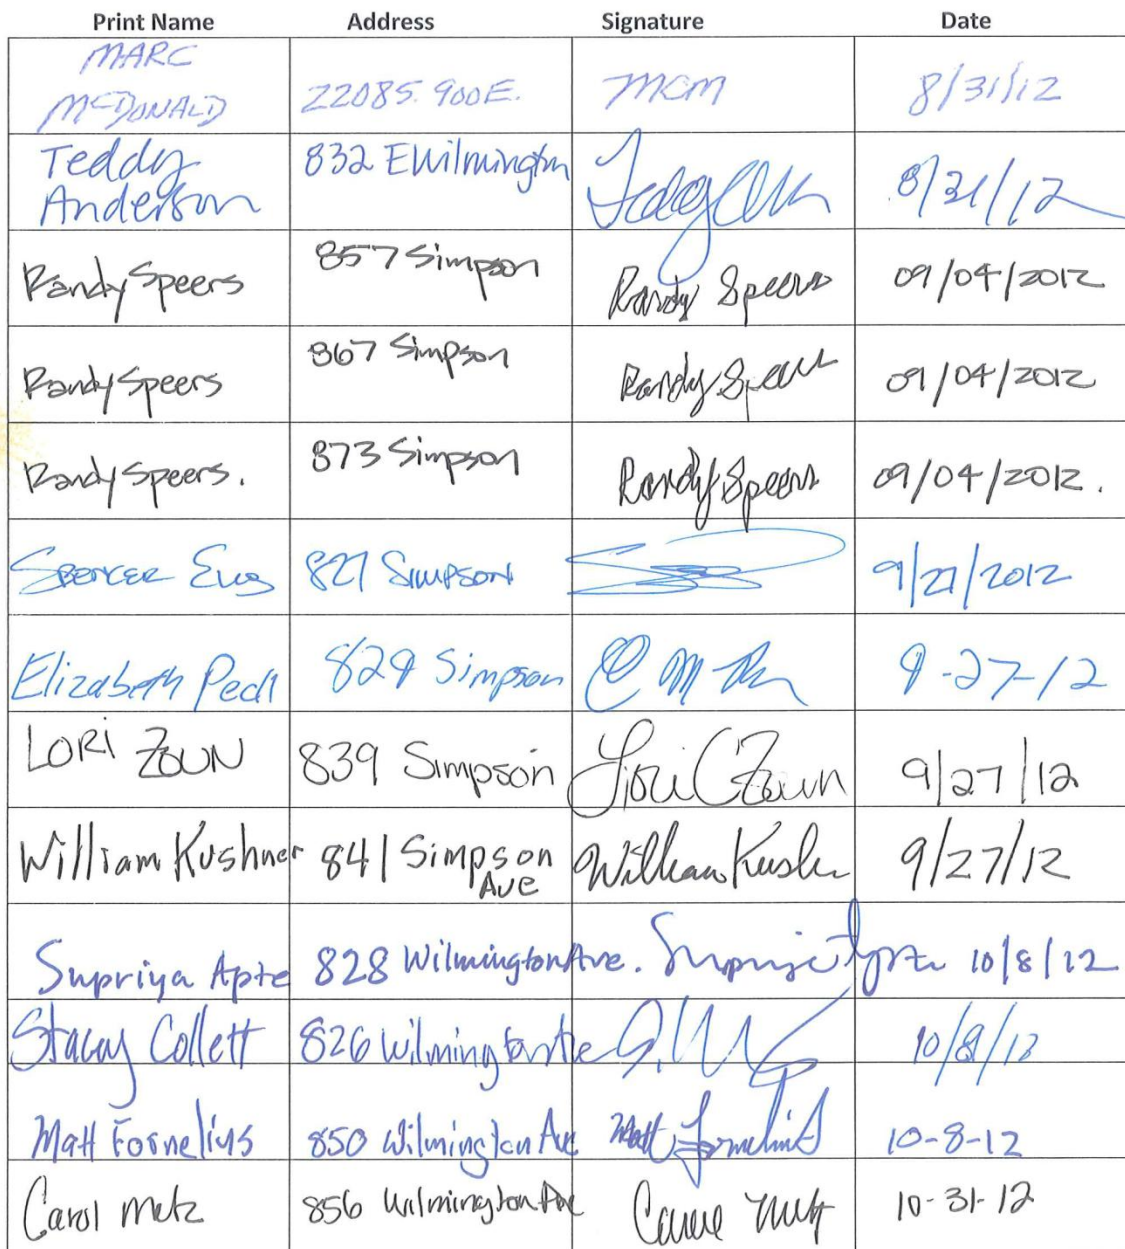 Print Name Address Signature Date
MARC
McDONALD 2208 S. 900 E. MCM 8/31/12
Teddy
Anderson 832 E Wilmington 8/31/12
Randy Speers 857 Simpson Randy Speers 09/04/2012
Randy Speers 867 Simpson Randy Speers 09/04/2012
Randy Speers. 873 Simpson Randy Speers 09/04/2012.
SPENCER 827 SIMPSON 9/27/2012
Elizabeth 829 Simpson 9-27-12
LORI ZOUN 839 Simpson Lori C Zoun 9/27/12
William Kushner 841 Simpson
AVE William Kushner 9/27/12
Supriya Apte 828 Wilmington Ave. Supriya Apte 10/8/12
Stacey Collett 826 Wilmington Ave 10/8/12
Matt Fornelius 850 Wilmington Ave Matt Fornelius 10-8-12
Carol Metz 856 Wilmington Ave Carol Metz 10-31-12